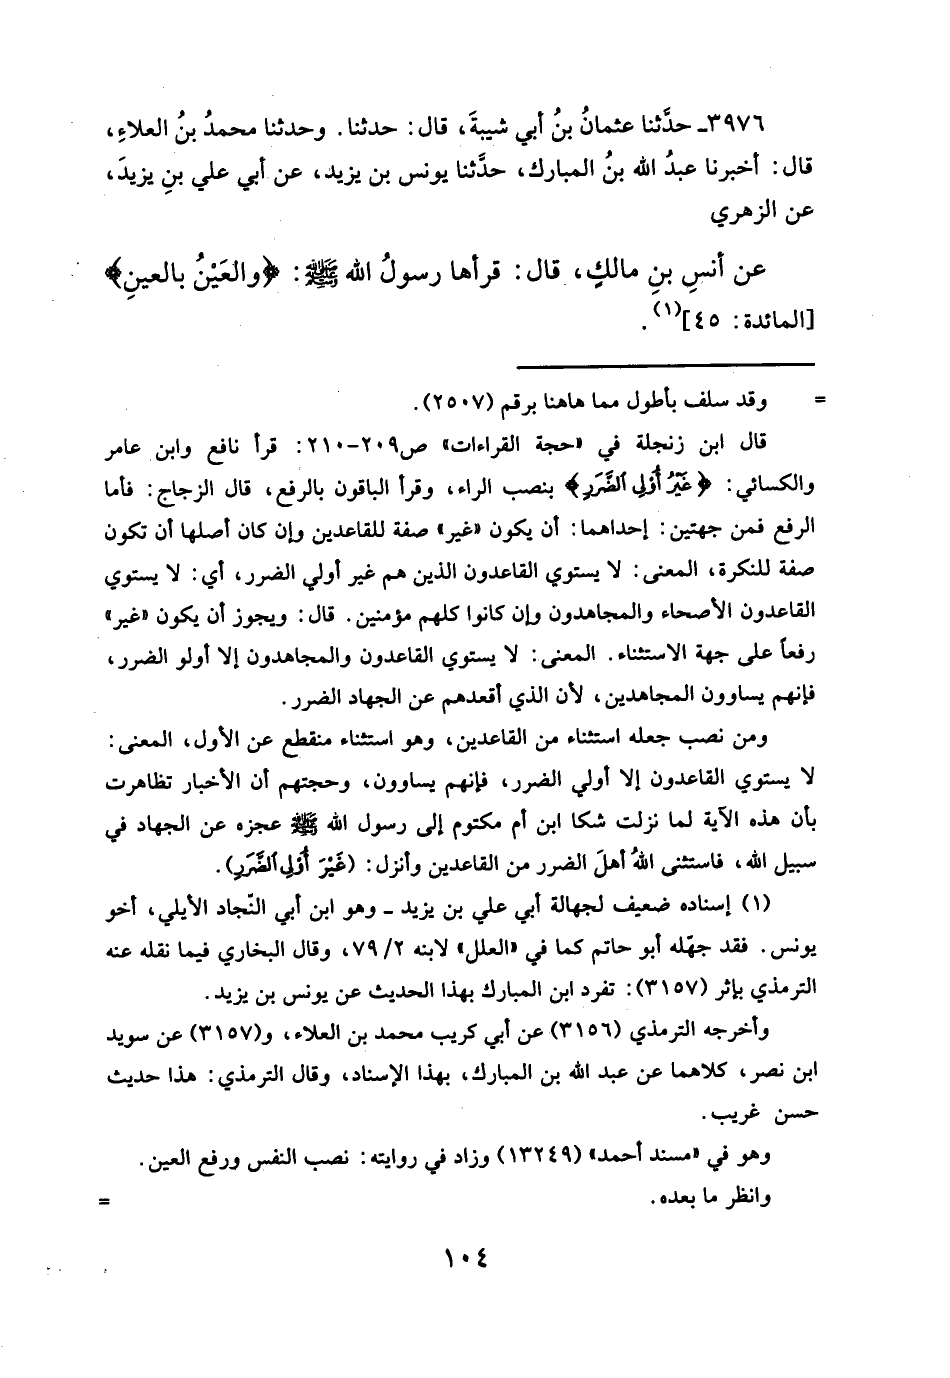 ٣٩٧٦ـ حدَّثنا عثمانُ بنُ أبي شيبةَ، قال: حدثنا. وحدثنا محمدُ بنُ العلاءِ،
قال: أخبرنا عبدُ الله بنُ المبارك، حدَّثنا يونس بن يزيد، عن أبي علي بنِ يزيدَ،
عن الزهري
عن أنسِ بنِ مالكٍ، قال: قرأها رسولُ الله ﷺ: ﴿والعَيْنُ بالعينِ﴾
[المائدة: ٤٥](١).
= وقد سلف بأطول مما هاهنا برقم (٢٥٠٧).
قال ابن زنجلة في «حجة القراءات» ص٢٠٩-٢١٠: قرأ نافع وابن عامر
والكسائي: ﴿غَيْرَ أُوْلِي ٱلضَّرَرِ﴾ بنصب الراء، وقرأ الباقون بالرفع، قال الزجاج: فأما
الرفع فمن جهتين: إحداهما: أن يكون «غير» صفة للقاعدين وإن كان أصلها أن تكون
صفة للنكرة، المعنى: لا يستوي القاعدون الذين هم غير أولي الضرر، أي: لا يستوي
القاعدون الأصحاء والمجاهدون وإن كانوا كلهم مؤمنين. قال: ويجوز أن يكون «غير»
رفعاً على جهة الاستثناء. المعنى: لا يستوي القاعدون والمجاهدون إلا أولو الضرر،
فإنهم يساوون المجاهدين، لأن الذي أقعدهم عن الجهاد الضرر.
ومن نصب جعله استثناء من القاعدين، وهو استثناء منقطع عن الأول، المعنى:
لا يستوي القاعدون إلا أولي الضرر، فإنهم يساوون، وحجتهم أن الأخبار تظاهرت
بأن هذه الآية لما نزلت شكا ابن أم مكتوم إلى رسول الله ﷺ عجزه عن الجهاد في
سبيل الله، فاستثنى اللهُ أهلَ الضرر من القاعدين وأنزل: (غَيْرَ أُوْلِي ٱلضَّرَرِ).
(١) إسناده ضعيف لجهالة أبي علي بن يزيد ـ وهو ابن أبي النّجاد الأيلي، أخو
يونس. فقد جهّله أبو حاتم كما في «العلل» لابنه ٢/ ٧٩، وقال البخاري فيما نقله عنه
الترمذي بإثر (٣١٥٧): تفرد ابن المبارك بهذا الحديث عن يونس بن يزيد.
وأخرجه الترمذي (٣١٥٦) عن أبي كريب محمد بن العلاء، و(٣١٥٧) عن سويد
ابن نصر، كلاهما عن عبد الله بن المبارك، بهذا الإسناد، وقال الترمذي: هذا حديث
حسن غريب.
وهو في «مسند أحمد» (١٣٢٤٩) وزاد في روايته: نصب النفس ورفع العين.
وانظر ما بعده. =
١٠٤